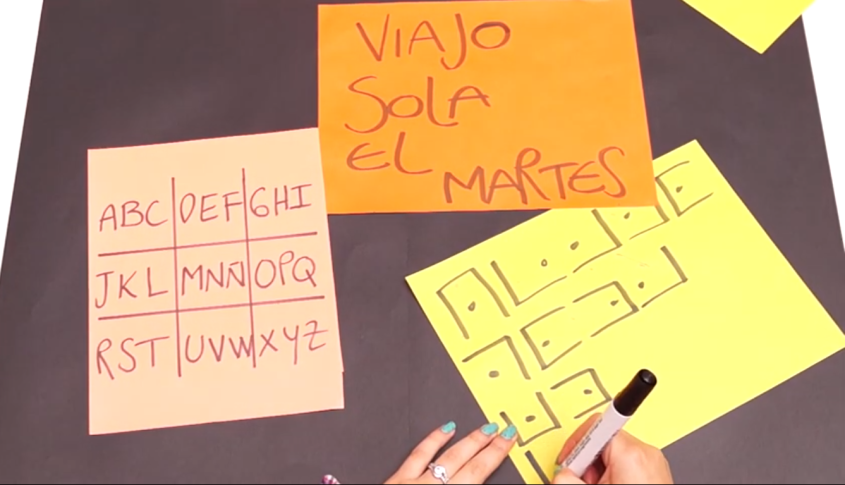 VIAJO
SOLA
EL
MARTES
ABC DEF GHI
JKL MNÑ OPQ
RST UVW XYZ